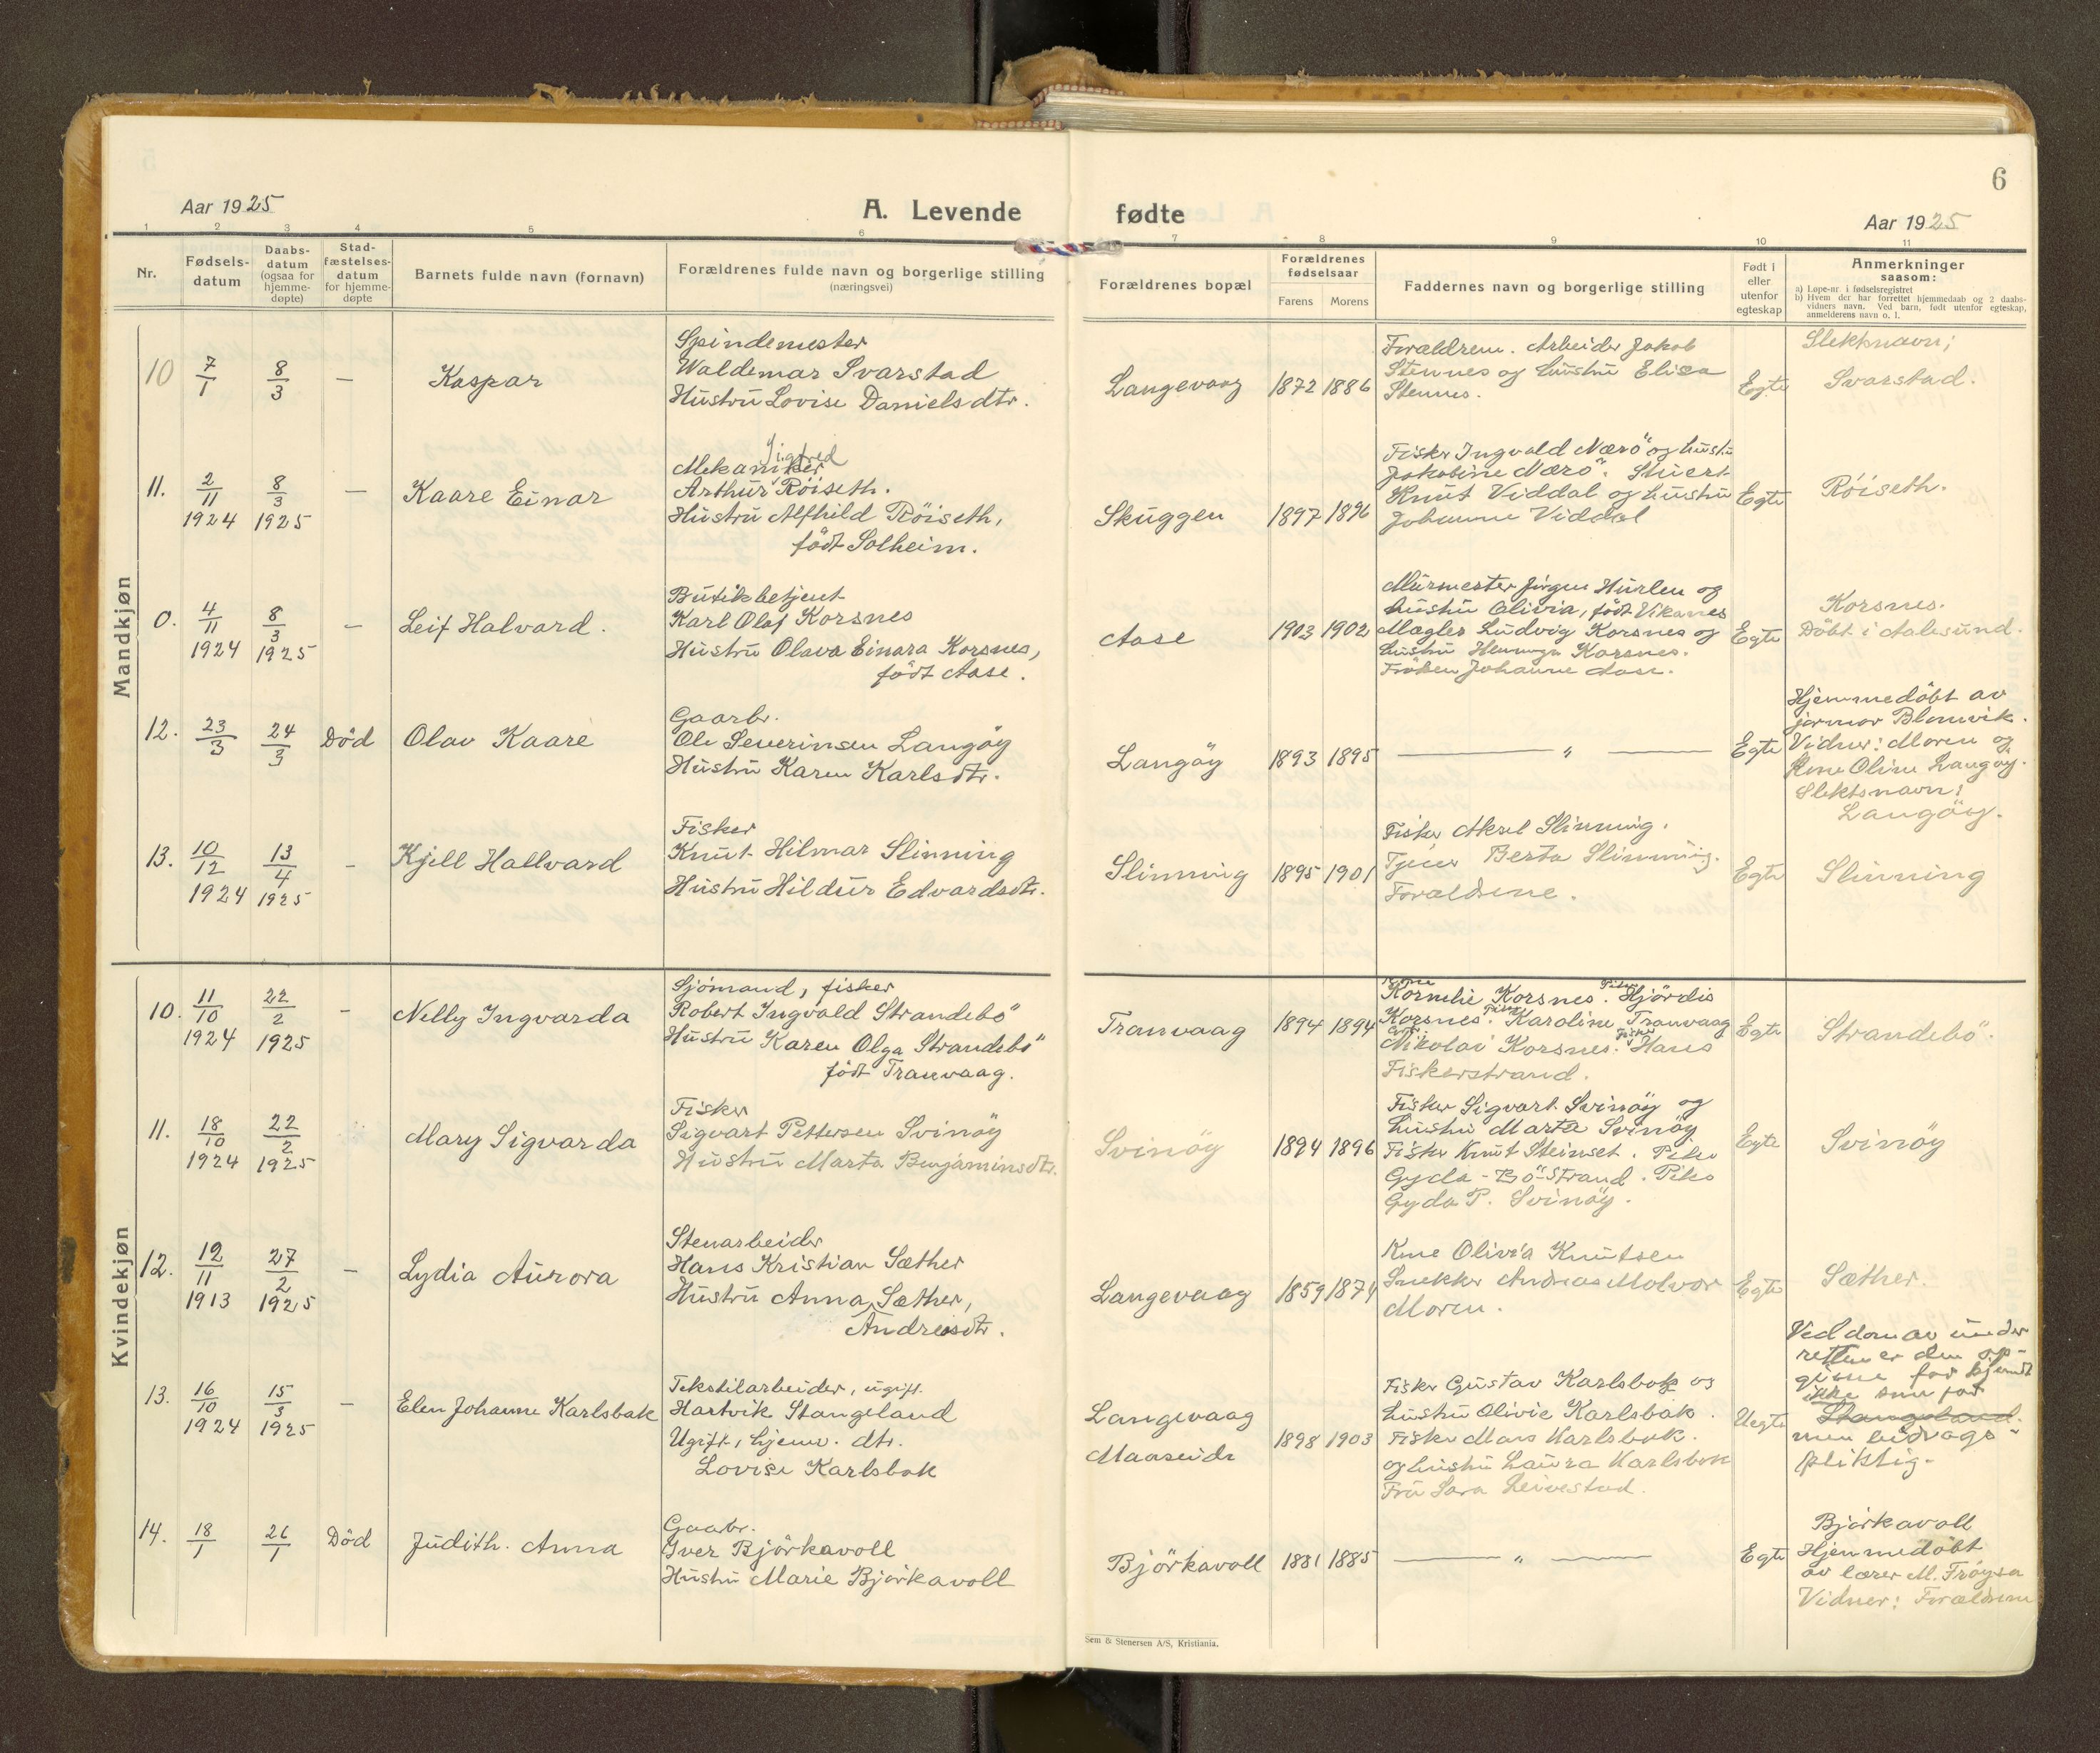 Aar 1925
A. Levende
1 2 3 4 5 6
Nr.
Fødsels-
datum
Daabs-
datum
(ogsaa for
hjemme-
døpte)
Stad-
fæstelses-
datum
for hjemme-
døpte
Barnets fulde navn (fornavn)
Forældrenes fulde navn og borgerlige stilling
(næringsvei)
fødte
6
Aar 1925
7 8 9 10 11
Forældrenes bopæl
Forældrenes
fødselsaar
Farens Morens
Faddernes navn og borgerlige stilling
Født i
eller
utenfor
egteskap
Anmerkninger
saasom:
a) Løpe-nr. i fødselsregistret
b) Hvem der har forrettet hjemmedaab og 2 daabs-
vidners navn. Ved barn, født utenfor egteskap,
anmelderens navn o. l.
Mandkjøn
10 7/1 8/3 — Kaspar
Spindemester
Waldemar Svarstad
Hustru Lovise Danielsdtr.
Langevaag 1872 1886
Forældrene. Arbeider Jakob
Stennes og hustru Elisa
Stennes.
Egte
Slektsnavn;
Svarstad.
11. 2/11 1924 8/3 1925 — Kaare Einar
Mekaniker
Sigfred
Arthur Röiseth.
Hustru Alfhild Röiseth,
født Solheim.
Skuggen 1897 1896
Fisker Ingvald Nærö og hustru
Jakobine Nærö. Stuert
Knut Viddal og hustru
Johanne Viddal
Egte
Röiseth.
0. 4/11 1924 8/3 1925 — Leif Halvard.
Butikbetjent
Karl Olaf Korsnes
Hustru Olava Einara Korsnes,
født Aase.
Aase 1903 1902
Murmester Jörgen Hurlen og
hustru Olivia, født Vikanes
Mægler Ludvig Korsnes og
hustru Korsnes.
Fröken Johanne Aase.
Egte
Korsnes.
Döbt i Aalesund.
12. 23/3 24/3 Död Olav Kaare
Gaarbr.
Ole Severinsen Langöy
Hustru Karen Karlsdtr.
Langöy 1893 1895
— " —
Egte
Hjemmedöbt av
jormor Blomvik.
Vidner: Moren og
Kone Oline Langöy.
Slektsnavn:
Langöy.
13. 10/12 1924 13/4 1925 - Kjell Hallvard
Fisker
Knut Hilmar Slinning
Hustru Hildur Edvardsdtr.
Slinning 1895 1901
Fisker Aksel Slinning.
Berta Slinning.
Forældrene.
Egte
Slinning
Kvindekjøn
10. 11/10 1924 22/2 1925 - Nelly Ingvarda
Sjömand, fisker
Robert Ingvald Strandebö
Hustru Karen Olga Strandebö
født Tranvaag.
Tranvaag 1894 1894
Kone
Kornelie Korsnes. Pike Hjördis
Korsnes. Pike Karoline Tranvaag
Nikolai Korsnes. Fisker Hans
Fiskerstrand.
Egte
Strandebö.
11. 18/10 1924 22/2 1925 Mary Sigvarda
Fisker
Sigvart Pettersen Svinöy
Hustru Marta Benjaminsdtr.
Svinöy 1894 1896
Fisker Sigvart Svinöy og
hustru Marta Svinöy
Fisker Knut Steinset. Pike
Gyda Böstrand. Pike
Gyda P. Svinöy.
Egte
Svinöy
12. 12/11 1913 27/2 1925 — Lydia Aurora
Stenarbeider
Hans Kristian Sæther
Hustru Anna Sæther,
Andreasdtr.
Langevaag 1859 1874
Kone Olivia Knutsen
Snekker Andreas Molvær
Moren.
Egte
Sæther.
13. 16/10 1924 15/3 1925 — Elen Johanne Karlsbak
Tekstilarbeider, ugift.
Hartvik Stangeland
Ugift, hjemv. dtr.
Lovise Karlsbak
Langevaag
Maaseide
1898 1903
Fisker Gustav Karlsbak og
hustru Olivie Karlsbak.
Fisker Mons Karlsbak.
og hustru Laura Karlsbak
Fru Sara Leivestad.
Uegte
Ved dom av under
retten er den op-
givne far kjendt
ikke som far
Stangeland.
men bidrags-
pliktig.
14. 18/1 26/1 Död Judith Anna
Gaabr.
Iver Björkavoll
Hustru Marie Björkavoll
Björkavoll 1881 1885
— " —
Egte
Björkavoll
Hjemmedöbt
av lærer M. Fröysa
Vidner: Forældrene
Sem & Stenersen A/S, Kristiania.